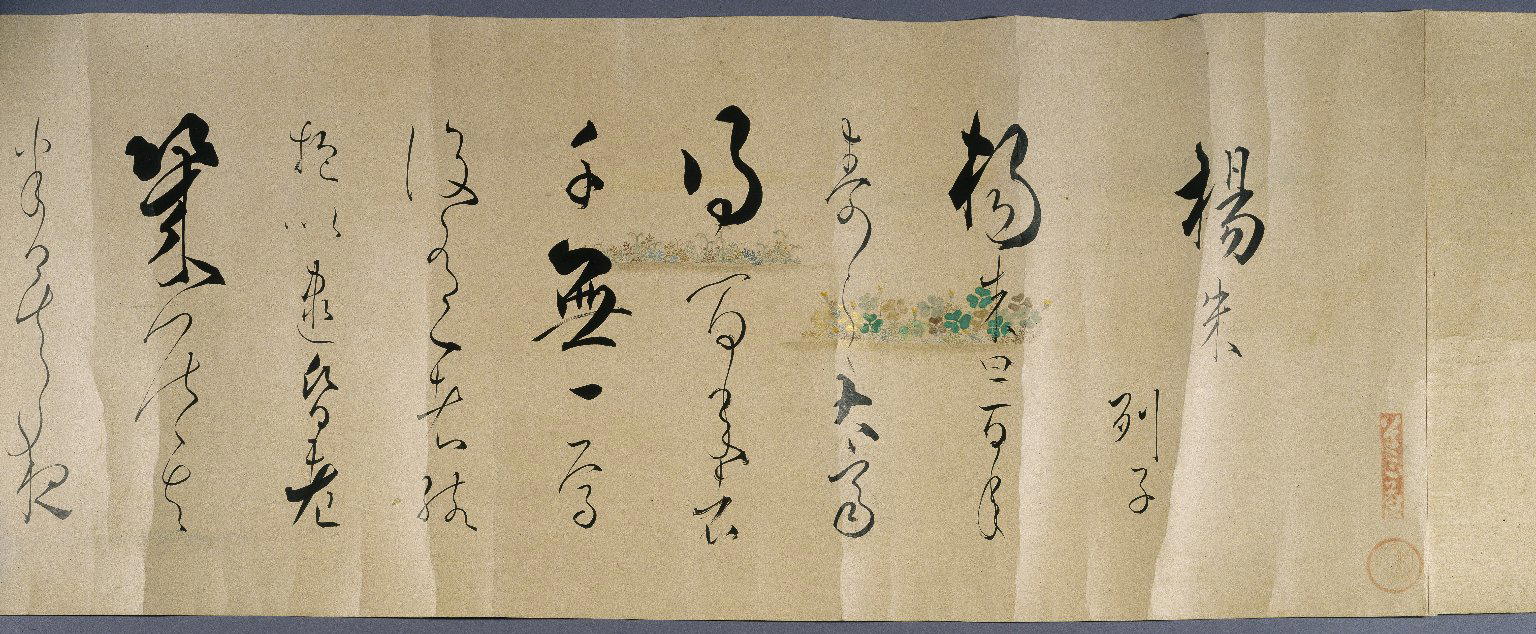 楊朱
列子
楊朱曰百年
壽之大齊
得百年者
千無一焉
設有一者孩
抱以逮昏老
幾居其
半矣夜